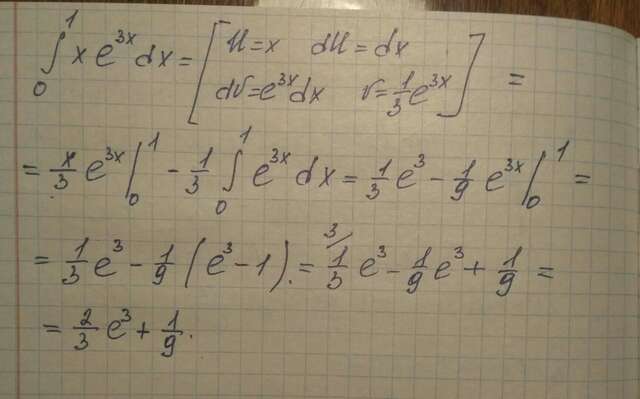 ∫₀¹ x e^{3x} dx = [ U = x   dU = dx
dV = e^{3x} dx   V = 1/3 e^{3x} ] =
= x/3 e^{3x} |₀¹ - 1/3 ∫₀¹ e^{3x} dx = 1/3 e³ - 1/9 e^{3x} |₀¹ =
= 1/3 e³ - 1/9 (e³ - 1) = ³⁄ 1/3 e³ - 1/9 e³ + 1/9 =
= 2/3 e³ + 1/9.